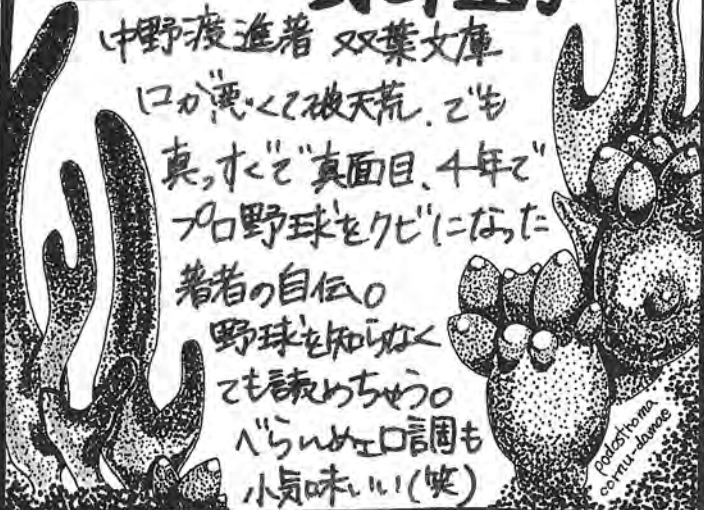 中野渡進著 双葉文庫
口が悪くて破天荒、でも
真っすぐで真面目、4年で
プロ野球をクビになった
著者の自伝。
野球を知らなく
ても読めちゃう。
べらんめェ口調も
小気味いい(笑)
podostroma
cornu-damae